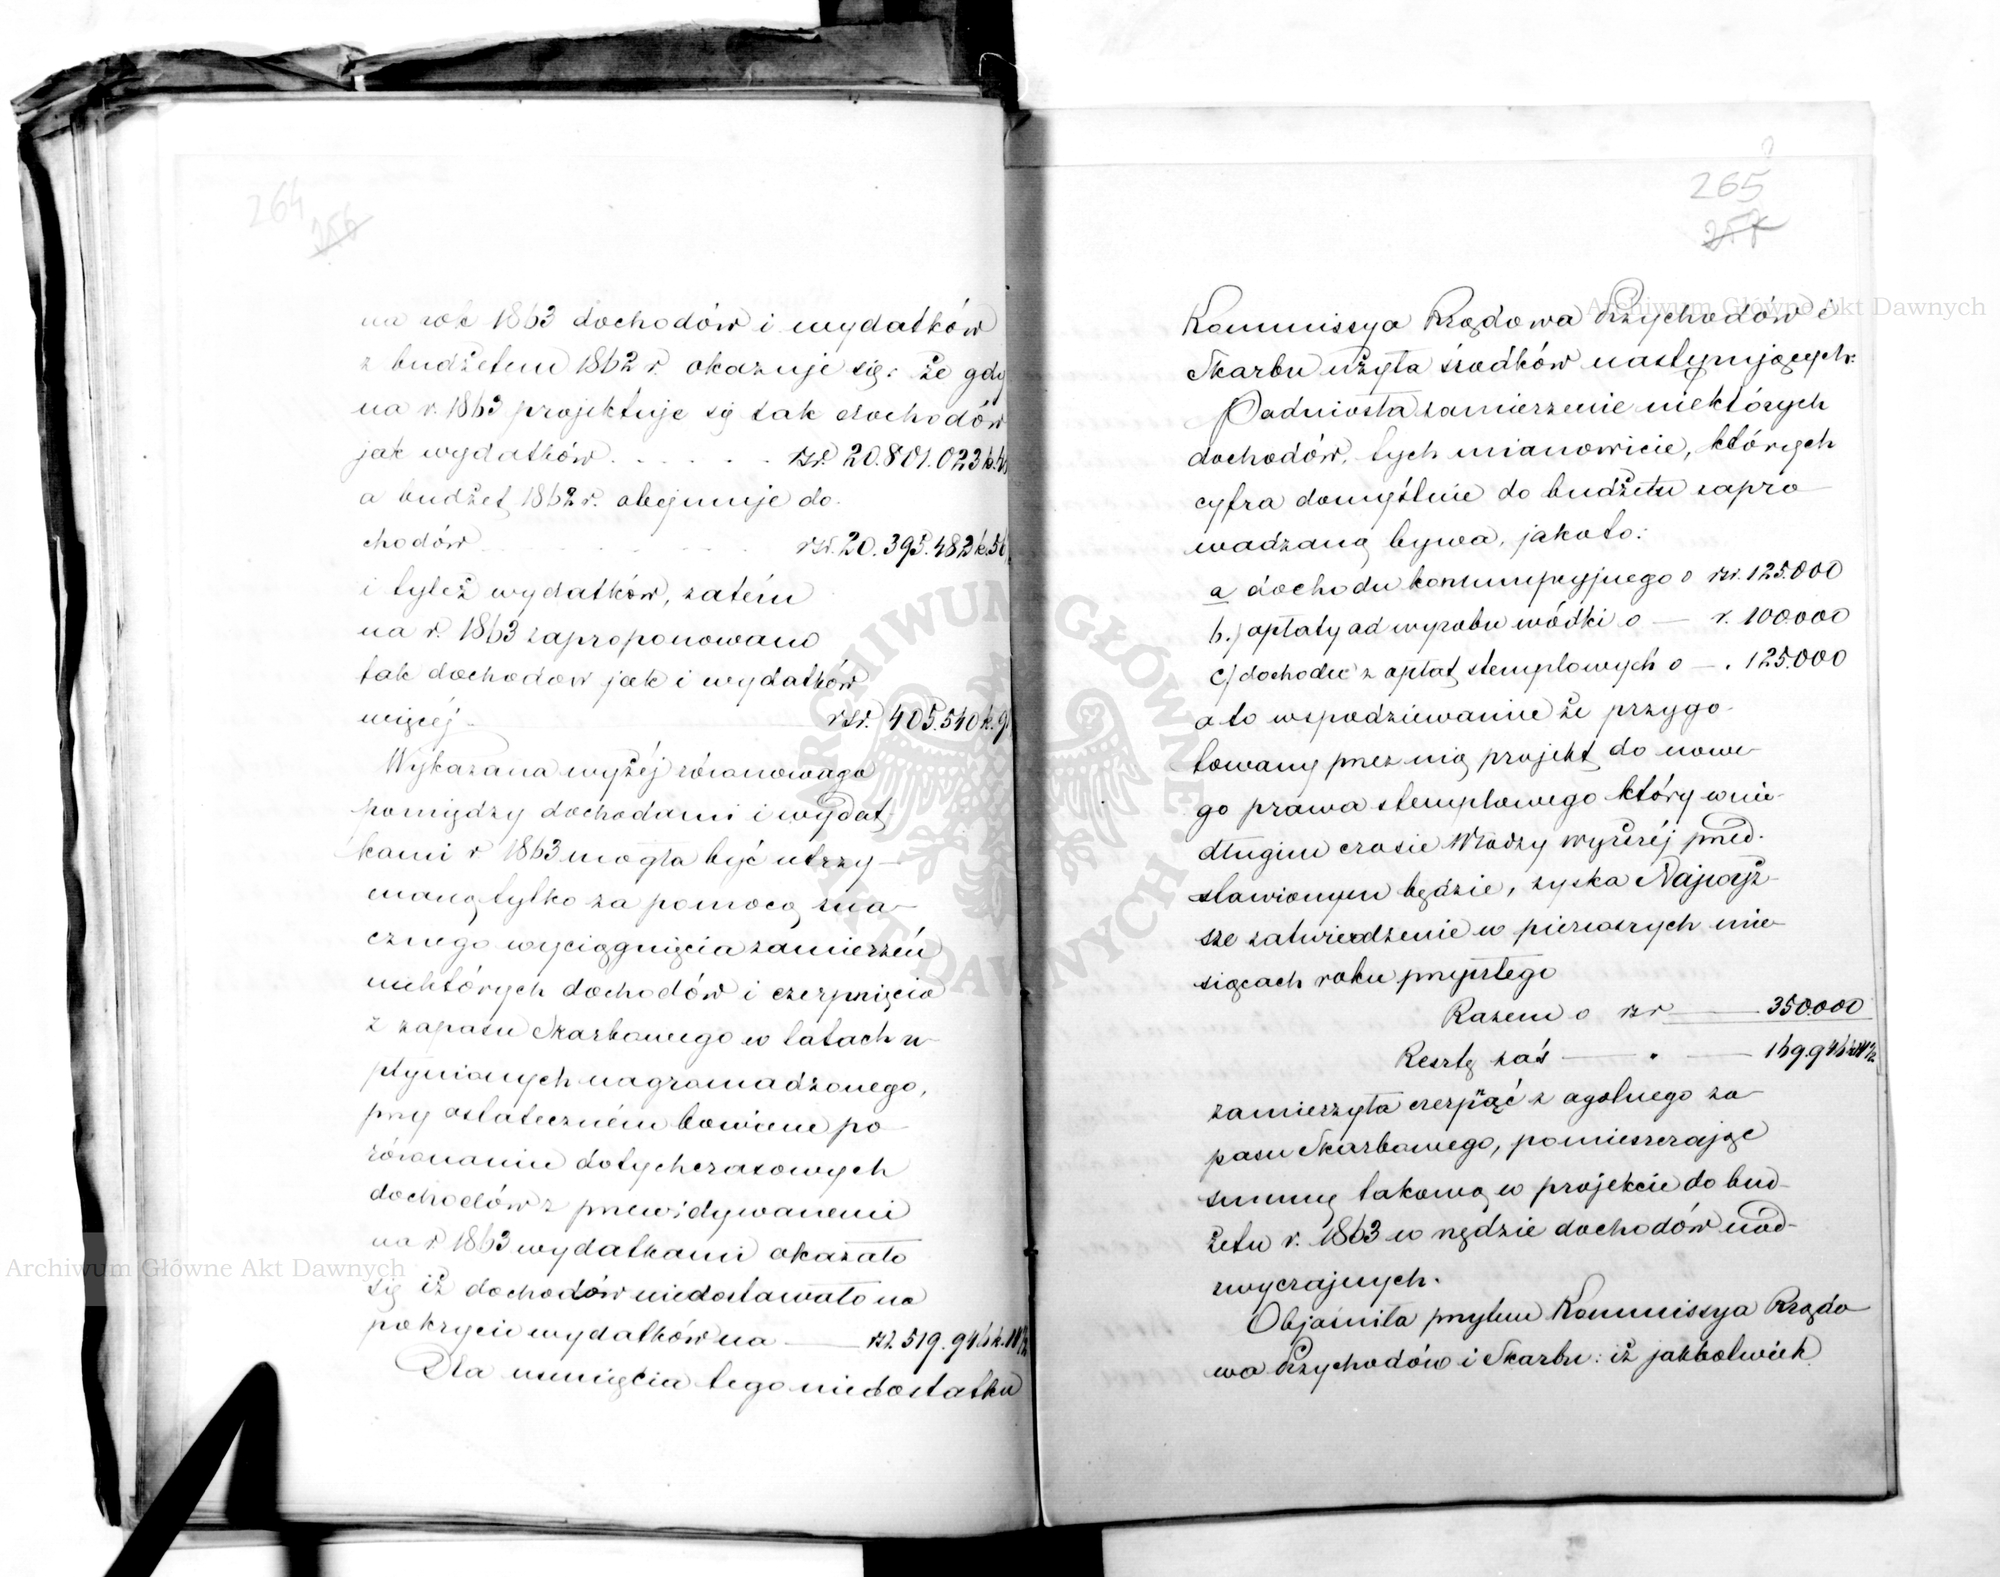 264
256
na rok 1863 dochodów i wydatków
z budżetem 1862 r. okazuje się: że gdy
na r. 1863 projektuje się tak dochodów
jak wydatków . . . . . . rsr. 20.801.023 k.
a budżet 1862 r. obejmuje do-
chodów . . . . . . rsr. 20.395.482 k. 56
i tyleż wydatków, zatém
na r. 1863 zaproponowano
tak dochodow jak i wydatków
więcej rsr. 405.540 k.
Wykazana wyżéj równowaga
pomiędzy dochodami i wydat-
kami r 1863 mogła być utrzy-
maną tylko za pomocą zna-
cznego wyciągnięcia zamierzeń
niektórych dochodów i czerpnięcia
z zapasu Skarbowego w latach u-
płynionych nagromadzonego,
przy ostateczném bowiem po-
równaniu dotychczasowych
dochodów z przewidywanemi
na r 1863 wydatkami okazało
się iż dochodów niedostawało na
pokrycie wydatków na rsr. 519.946 k.
Dla usunięcia tego niedostatku
265
257
Kommissya Rządowa Przychodów i
Skarbu użyła środków następujących:
Podniosła zamierzenie niektórych
dochodów, tych mianowicie, których
cyfra domyślnie do budżetu zapro-
wadzaną bywa, jakoto:
a dochodu konsumpcyjnego o rsr. 125.000
b.) opłaty od wyrobu wódki o — r. 100000
c) dochodu z opłat stemplowych o — . 125.000
a to wspodziewanie że przygo-
towany przez nią projekt do nowe-
go prawa stemplowego który w nie-
długim czasie Władzy wyższéj przed-
stawionym będzie, zyska Najwyż-
sze zatwierdzenie w pierwszych mie-
siącach roku przyszłego
Razem o rsr 350.000
Resztę zaś — " — 169.946
zamierzyła czerpać z ogólnego za-
pasu Skarbowego, pomieszczając
summę takową w projekcie do bud-
żetu r. 1863 w rzędzie dochodów nad-
zwyczajnych.
Objaśniła przytem Kommissya Rządo-
wa Przychodów i Skarbu: iż jakkolwiek
Archiwum Główne Akt Dawnych
Archiwum Główne Akt Dawnych
ARCHIWUM GŁÓWNE AKT DAWNYCH